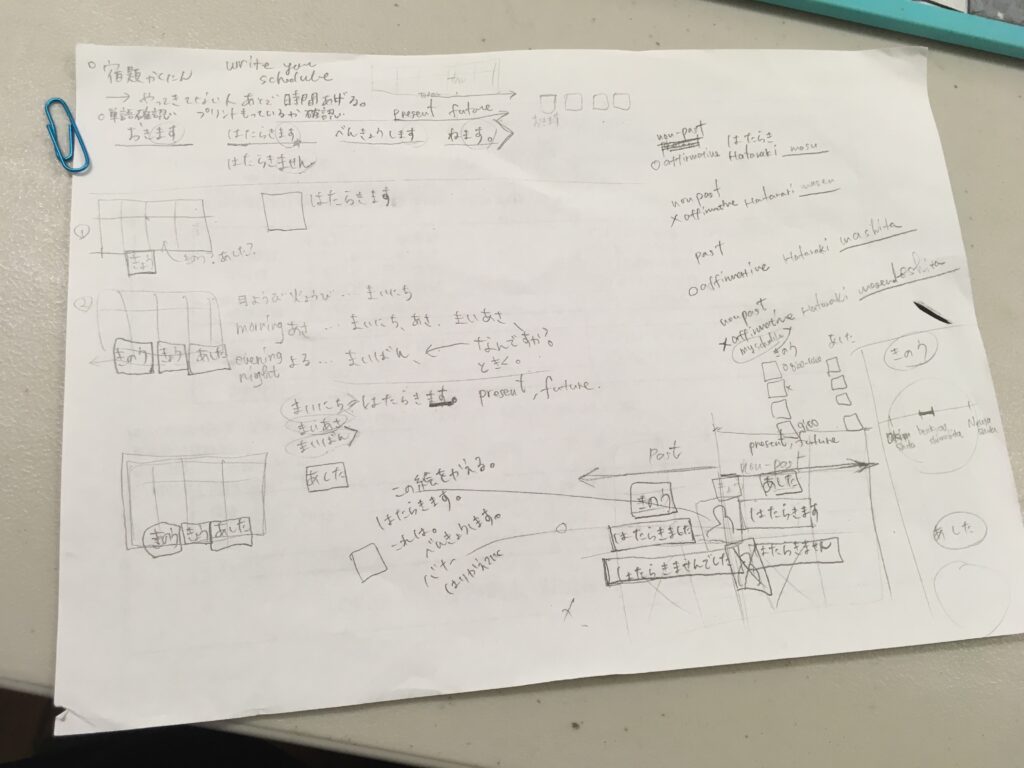 宿題かくにん write you schedule
→ やってきてない人 あとで時間あげる。
○単語確認 プリントもっているか確認
present future
おきます はたらきます べんきょうします ねます。
はたらきません
おきます
① はたらきます
きょう きのう?あした?
② 月ようび 火ようび … まいにち
morning あさ … まいにち、あさ まいあさ
きのう きょう あした
evening night よる … まいばん、 ← なんですか? ときく。
まいにち はたらきます。 present, future.
まいあさ
まいばん
あした
きのう きょう あした
この絵をかえる。
はたらきます。
これは。
べんきょうします。
non-past はたらき
○affirmative Hataraki masu
non past
×affirmative Hataraki masen
past
○affirmative Hataraki mashita
non past
×affirmative Hataraki masendeshita
きのう あした
present, future
Past non-past
きのう あした
はたらきました はたらきます
はたらきませんでした はたらきません
きのう
あした